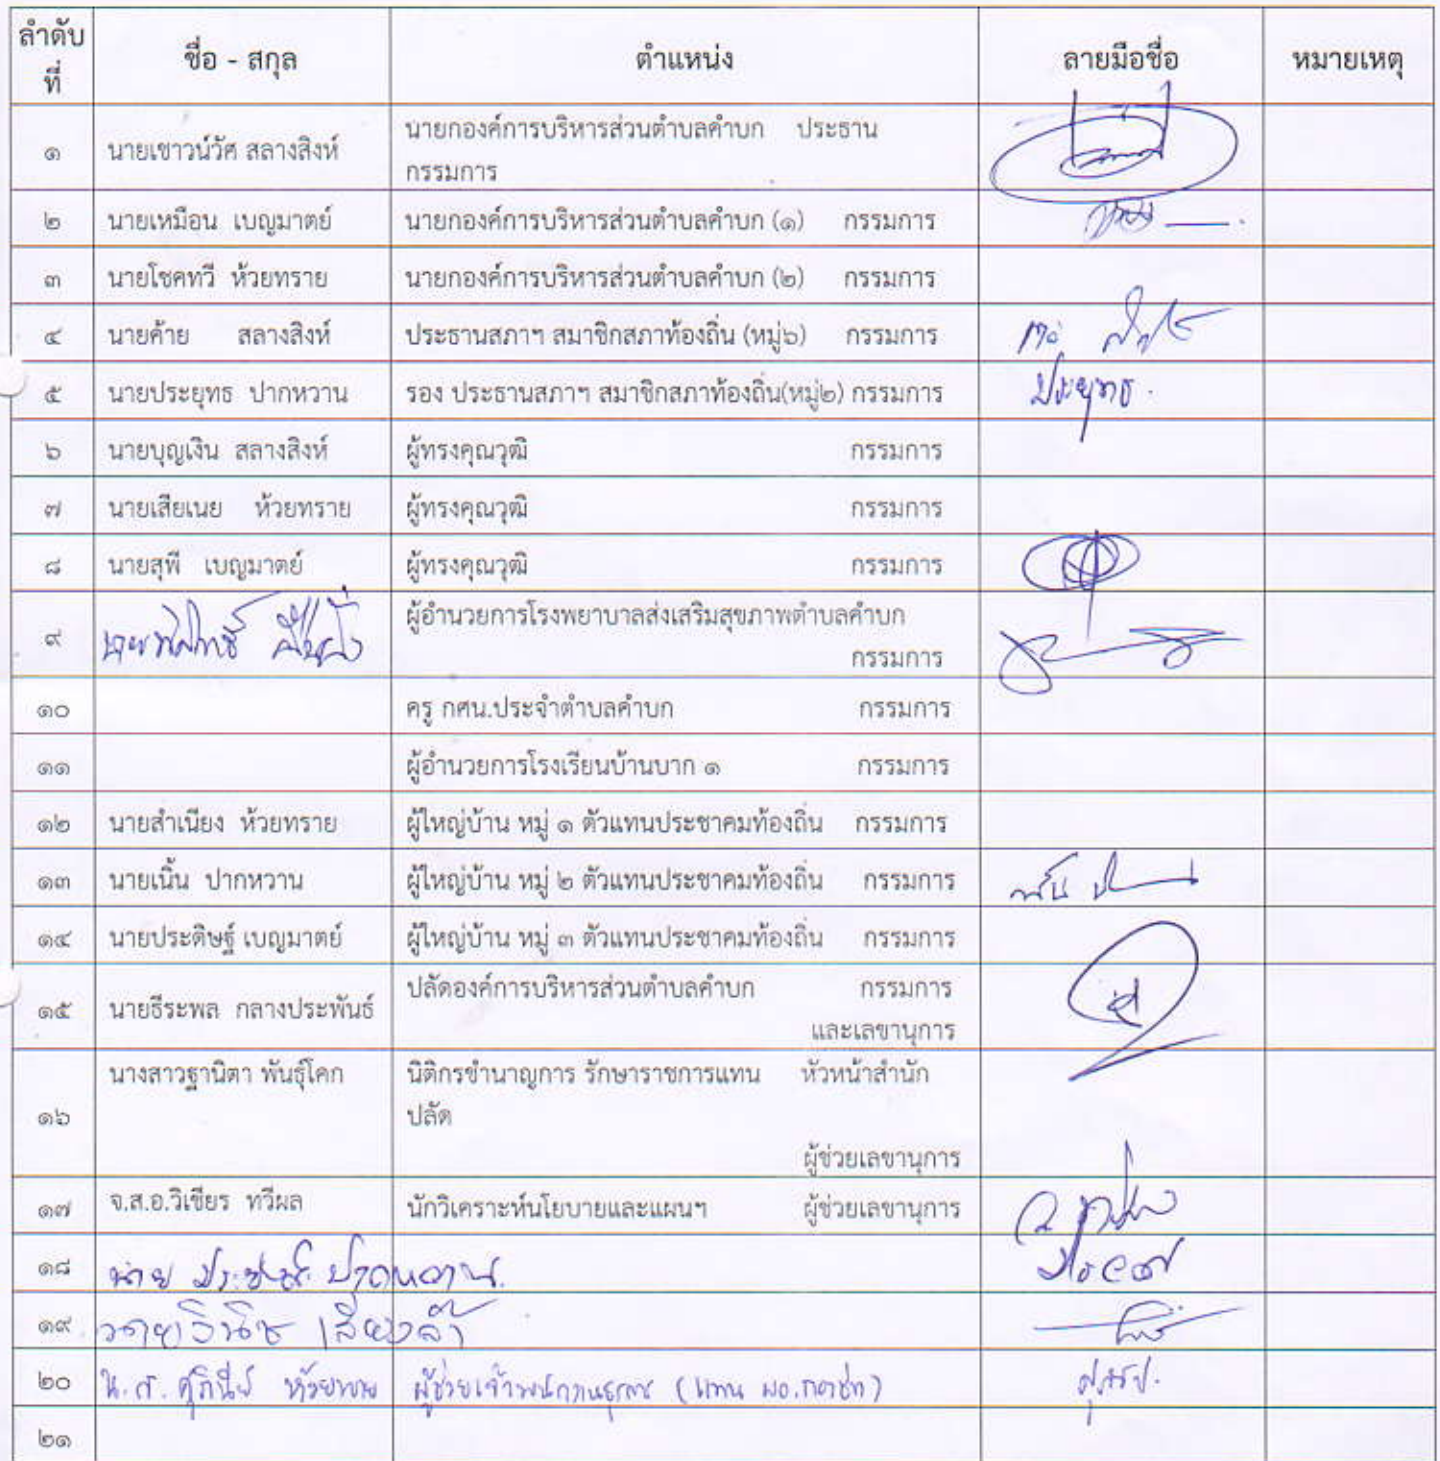 ลำดับ ชื่อ - สกุล ตำแหน่ง ลายมือชื่อ หมายเหตุ
ที่
๑ นายเชาวน์วัศ สลางสิงห์ นายกองค์การบริหารส่วนตำบลคำบก ประธาน
กรรมการ
๒ นายเหมือน เบญมาตย์ นายกองค์การบริหารส่วนตำบลคำบก (๑) กรรมการ
๓ นายโชคทวี ห้วยทราย นายกองค์การบริหารส่วนตำบลคำบก (๒) กรรมการ
๔ นายค้าย สลางสิงห์ ประธานสภาฯ สมาชิกสภาท้องถิ่น (หมู่๖) กรรมการ
๕ นายประยุทธ ปากหวาน รอง ประธานสภาฯ สมาชิกสภาท้องถิ่น(หมู่๒) กรรมการ ประยุทธ.
๖ นายบุญเงิน สลางสิงห์ ผู้ทรงคุณวุฒิ กรรมการ
๗ นายเสียเนย ห้วยทราย ผู้ทรงคุณวุฒิ กรรมการ
๘ นายสุพี เบญมาตย์ ผู้ทรงคุณวุฒิ กรรมการ
๙ ผู้อำนวยการโรงพยาบาลส่งเสริมสุขภาพตำบลคำบก
กรรมการ
๑๐ ครู กศน.ประจำตำบลคำบก กรรมการ
๑๑ ผู้อำนวยการโรงเรียนบ้านบาก ๑ กรรมการ
๑๒ นายสำเนียง ห้วยทราย ผู้ใหญ่บ้าน หมู่ ๑ ตัวแทนประชาคมท้องถิ่น กรรมการ
๑๓ นายเนิ้น ปากหวาน ผู้ใหญ่บ้าน หมู่ ๒ ตัวแทนประชาคมท้องถิ่น กรรมการ
๑๔ นายประดิษฐ์ เบญมาตย์ ผู้ใหญ่บ้าน หมู่ ๓ ตัวแทนประชาคมท้องถิ่น กรรมการ
๑๕ นายธีระพล กลางประพันธ์ ปลัดองค์การบริหารส่วนตำบลคำบก กรรมการ
และเลขานุการ
๑๖ นางสาวฐานิตา พันธุ์โคก นิติกรชำนาญการ รักษาราชการแทน หัวหน้าสำนัก
ปลัด
ผู้ช่วยเลขานุการ
๑๗ จ.ส.อ.วิเชียร ทวีผล นักวิเคราะห์นโยบายและแผนฯ ผู้ช่วยเลขานุการ
๑๘ นาย ปากหวาน
๑๙ นาย
๒๐ น.ส. ห้วยทราย ผู้ช่วยเจ้าพนักงานธุรการ (แทน ผอ.กองช่าง)
๒๑